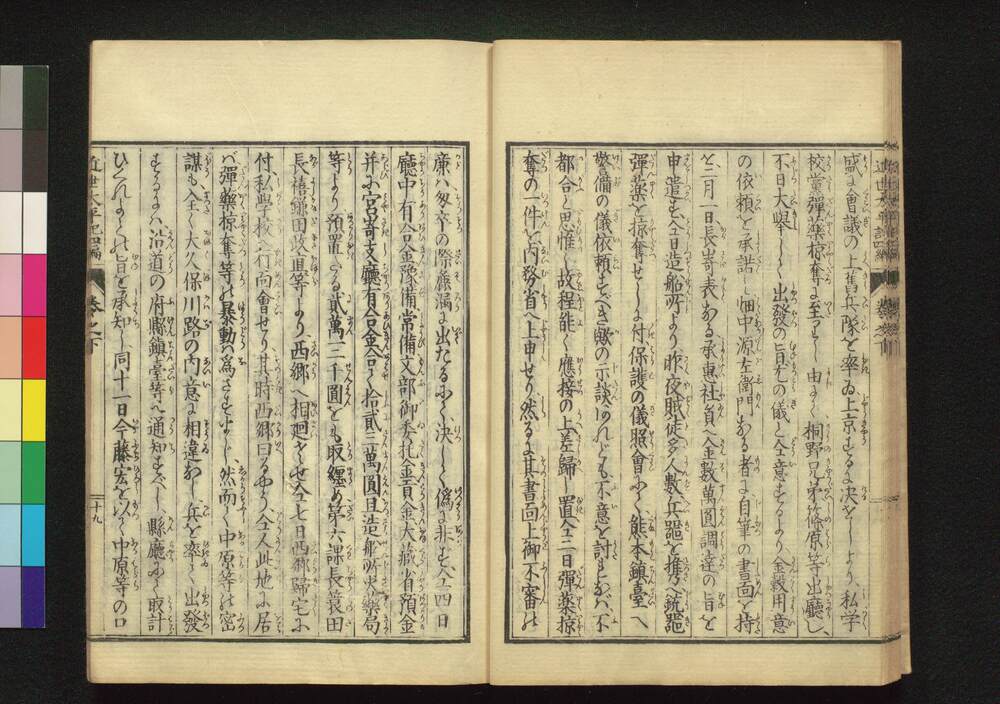 盛よ會議の上舊兵隊を率ゐ上京するよ决をしより、私学
校黨彈藥掠奪よ至りし由よく桐野兄弟篠原等出廳し、
不日大擧しく出發の旨尤の儀と仝意するより金穀用意
の依頼を承諾し畑中源左衛門ある者よ自筆の書面を持
と三月一日長崎表ある承惠社員へ金數萬圓調達の旨を
申遣を仝日造船所より昨夜賊徒多人數兵噐を携へ銃噐
彈藥を掠奪せしよ付保護の儀照會ふく熊本鎮臺へ
警備の儀依頼すべき歟の示談のれども不意を討るが八、不
都合と思惟し故程能く應接の上差歸し置仝二日彈薬掠
奪の一件を内務省へ上申せり然るよ其書面上御不審の
廉八匆卒の際嚴漏よ出たるふく、决しく偽よ非ず、仝四日
廳中有合金豫備常備文部御委托金貢金大藏省預金
并ふ宮崎支廳有合金合く拾貳三萬圓且造船所火藥局
等より預置たる貳萬二千圓をも取纏め第六課長簑田
長禧鎌田政直等より、西郷へ相廻をせ仝七日西郷歸宅ふ
付、私學校へ行向會せり、其時西郷曰るやう仝人此地ふ居
バ彈藥掠奪等の暴動八爲さすまじ、然而しく中原等の密
謀も全く大久保川路の内意よ相違あし、兵を率く出發
するる八沿道の府縣鎮臺等へ通知すべし、縣廳ふく取計
ひくれのくれの旨を承知し同十一日今藤宏を以く中原等の口
近世太平記四編
卷之下
二十九